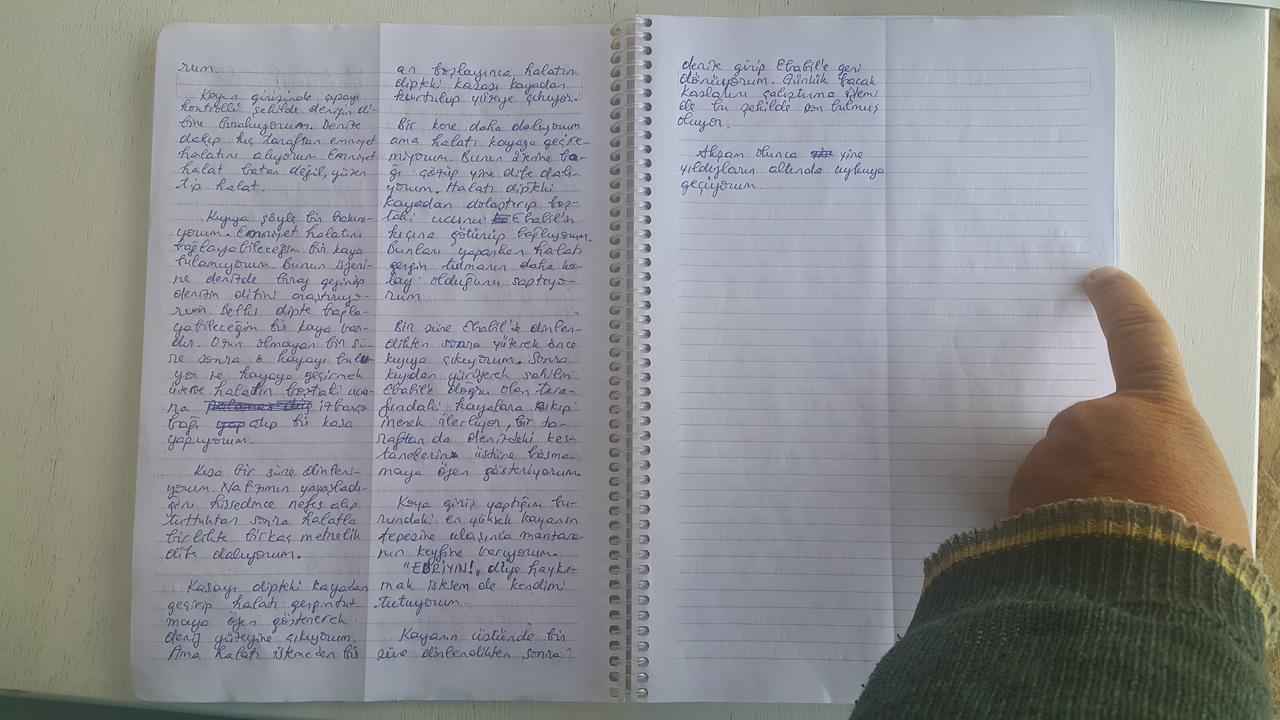 rum.
Koyun girişinde çıpayı
kontrollü şekilde denizin di-
bine bırakıyorum. Denize
dalıp kıç taraftan emniyet
halatını alıyorum. Emniyet
halat batar değil, yüzer
tip halat.
Kıyıya şöyle bir bakını-
yorum. Emniyet halatını
bağlayabileceğim bir kaya
bulamıyorum. Bunun üzeri-
ne denizde biraz gezinip
denizin dibini araştırıyo-
rum. Belki dipte bağla-
yabileceğim bir kaya var-
dır. Uzun olmayan bir sü-
re sonra o kayayı bulu-
yor ve kayaya geçirmek
üzere halatın boştaki ucu-
na izbarço
bağı atıp bir kasa
yapıyorum.
Kısa bir süre dinleni-
yorum. Nabzımın yavaşladı-
ğını hissedince nefes alıp
tuttuktan sonra halatla
birlikte birkaç metrelik
dibe dalıyorum.
Kasayı dipteki kayadan
geçirip halatı gergin tut-
maya özen göstererek
deniz yüzeyine çıkıyorum.
Ama halatı istemeden bir
an boşlayınca halatın
dipteki kasası kayadan
kurtulup yüzeye çıkıyor.
Bir kere daha dalıyorum
ama halatı kayaya geçire-
miyorum. Bunun üzerine ba-
ğı çözüp yine dibe dalı-
yorum. Halatı dipteki
kayadan dolaştırıp boş-
taki ucunu Ebabil'in
kıçına götürüp bağlıyorum.
Bunları yaparken halatı
gergin tutmanın daha ko-
lay olduğunu saptıyo-
rum
Bir süre Ebabil'de dinlen-
dikten sonra yüzerek önce
kıyıya çıkıyorum. Sonra
kıyıdan yürüyerek sahilin
Ebabil'e doğru olan tara-
fındaki kayalara
merek ilerliyor, bir ta-
raftan da denizdeki kes-
tanelerin üstüne basma-
maya özen gösteriyorum.
Koya giriş yaptığım bu-
rundaki en yüksek kayanın
tepesine ulaşınca manzara-
nın keyfine varıyorum.
"EDRİYIN!" diye haykır-
mak istesem de kendimi
tutuyorum.
Kayanın üstünde bir
süre dinlendikten sonra
denize girip Ebabil'e geri
dönüyorum. Günlük bacak
kaslarını çalıştırma işlemi
de bu şekilde son bulmuş
oluyor.
Akşam olunca yine
yıldızların altında uykuya
geçiyorum.